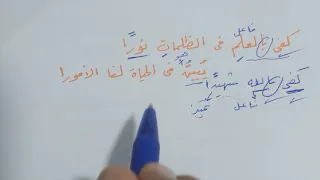 فاعل
كفى بالعلم في الظلمات نورًا
يُبيّن في الحياة لنا الأمورا
كفى بالله شهيدًا
فاعل تمييز